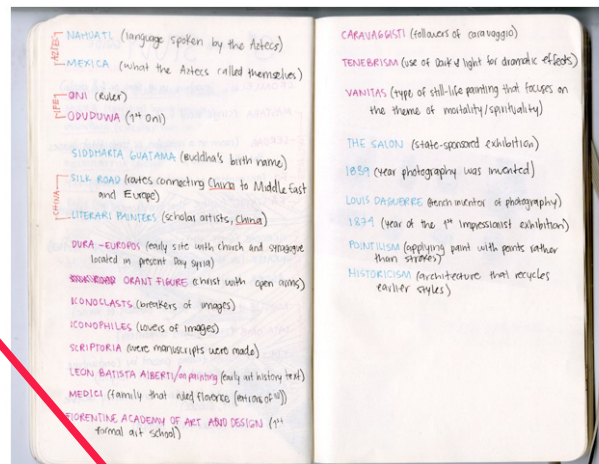 AZTEC
NAHUATL (language spoken by the Aztecs)
MEXICA (what the Aztecs called themselves)
IFE
ONI (ruler)
ODUDUWA (1st Oni)
SIDDHARTA GUATAMA (Buddha's birth name)
CHINA
SILK ROAD (routes connecting China to Middle East
and Europe)
LITERARI PAINTERS (scholar artists, China)
DURA-EUROPOS (early site with church and synagogue
located in present Day Syria)
ORANT FIGURE (christ with open arms)
ICONOCLASTS (breakers of images)
ICONOPHILES (lovers of images)
SCRIPTORIA (were manuscripts were made)
LEON BATISTA ALBERTI/on painting (early art history text)
MEDICI (family that ruled florence
FLORENTINE ACADEMY OF ART AND DESIGN (1st
formal art school)
CARAVAGGISTI (followers of caravaggio)
TENEBRISM (use of Dark & light for dramatic effects)
VANITAS (type of still-life painting that focuses on
the theme of mortality/spirituality)
THE SALON (state-sponsored exhibition)
1839 (year photography was invented)
LOUIS DAGUERRE (french inventor of photography)
1874 (year of the 1st impressionist exhibition)
POINTILISM (applying paint with points rather
than strokes)
HISTORICISM (architecture that recycles
earlier styles)